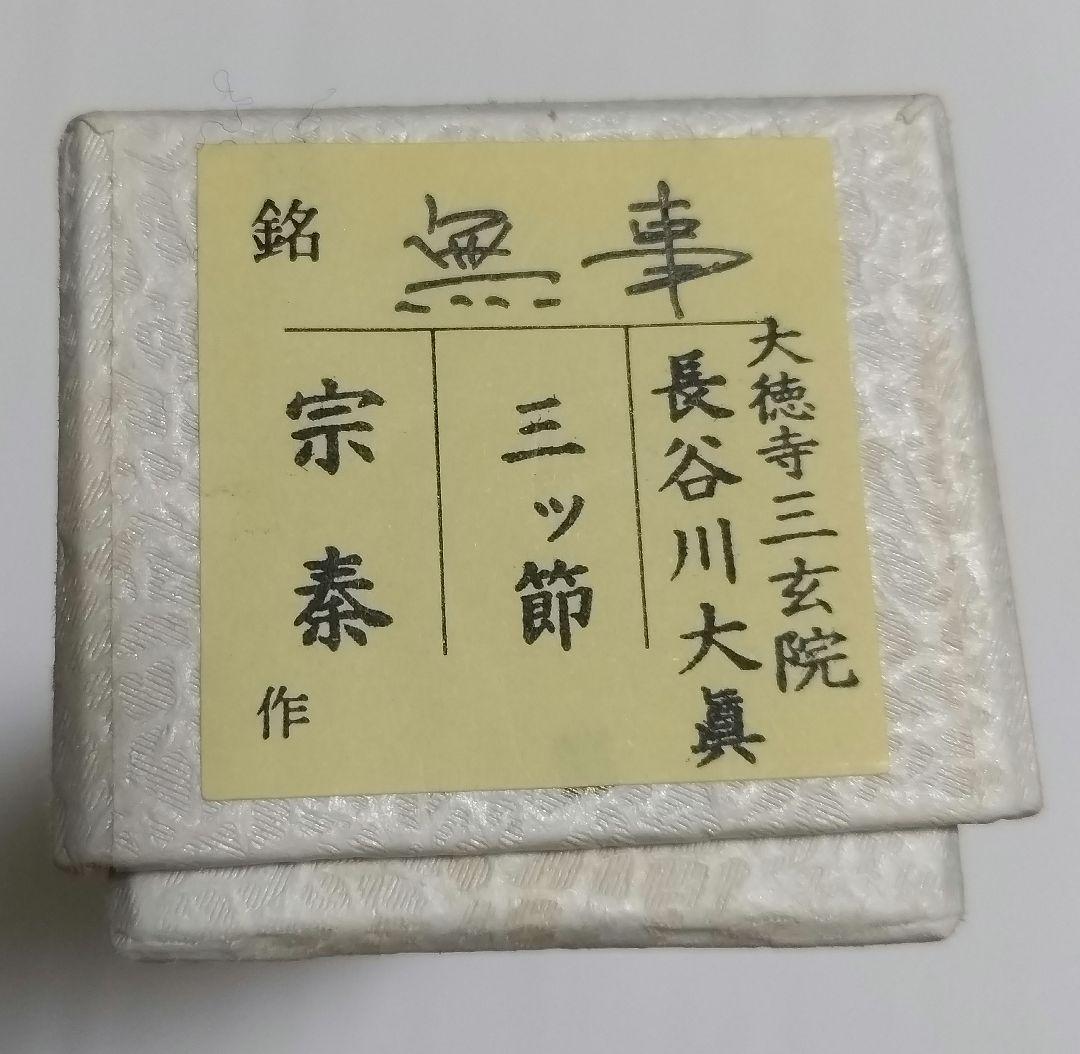 銘 無事
大徳寺三玄院
長谷川大眞
三ッ節
宗秦
作